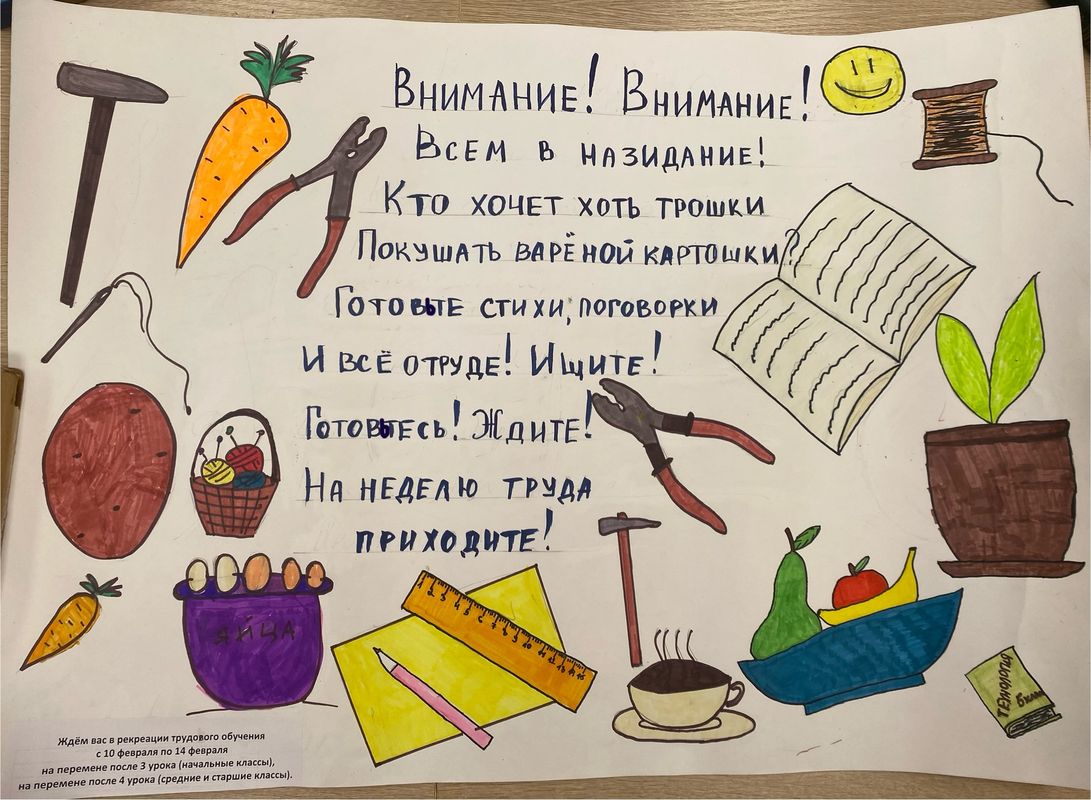 Внимание! Внимание!
Всем в назидание!
Кто хочет хоть трошки
Покушать варёной картошки?
Готовьте стихи, поговорки
И всё о труде! Ищите!
Готовьтесь! Ждите!
На неделю труда
приходите!
ЯЙЦА
1 2 3 4 5 6 7 8 9 10 11 12 13 14 15
ТЕХНОЛОГИЯ
6 класс
Ждём вас в рекреации трудового обучения
с 10 февраля по 14 февраля
на перемене после 3 урока (начальные классы),
на перемене после 4 урока (средние и старшие классы).